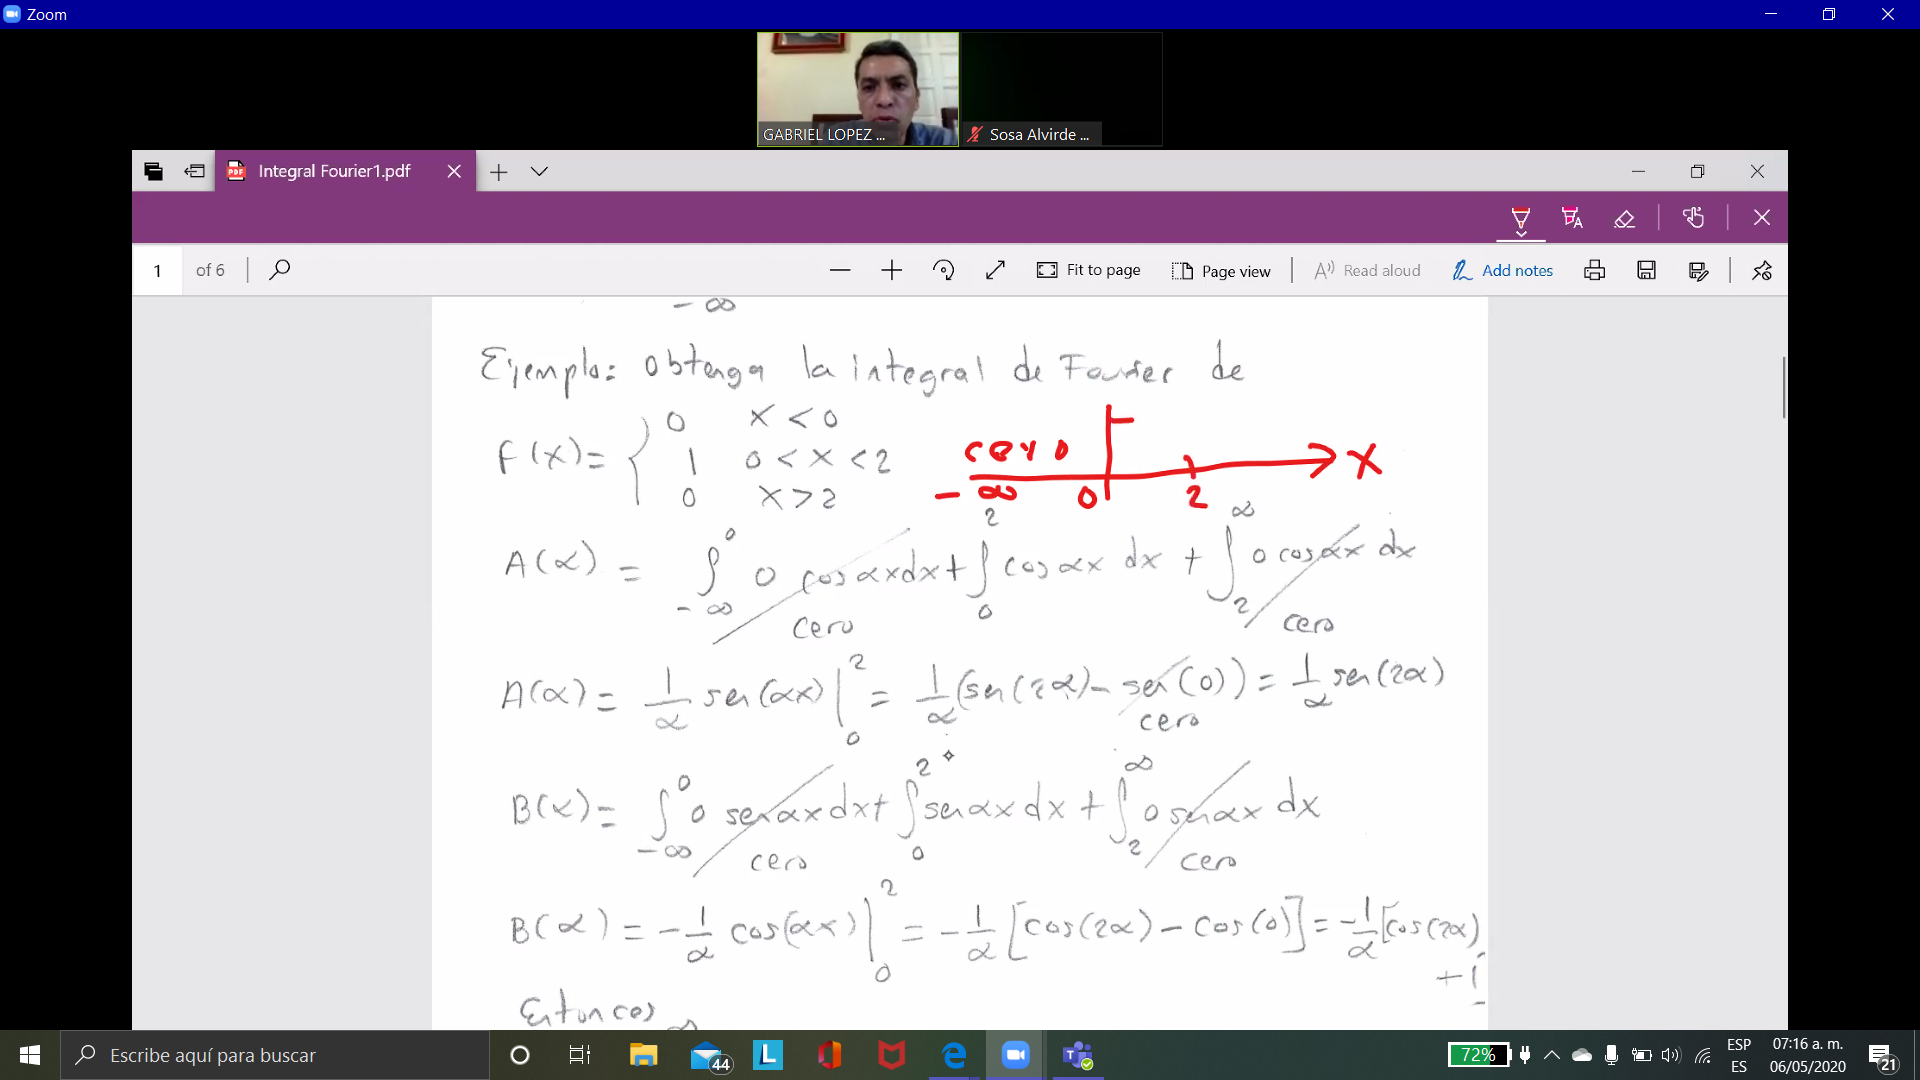 Zoom
GABRIEL LOPEZ ...
Sosa Alvirde ...
Integral Fourier1.pdf
1 of 6
Fit to page
Page view
Read aloud
Add notes
- ∞
Ejemplo: Obtenga la integral de Fourier de
f(x) = { 0 x < 0
1 0 < x < 2
0 x > 2
cero
- ∞ 0 2 x
A(α) = ∫_{-∞}^{0} 0 cos αx dx + ∫_{0}^{2} cos αx dx + ∫_{2}^{∞} 0 cos αx dx
cero cero
A(α) = 1/α sen(αx) |_{0}^{2} = 1/α (sen(2α) - sen(0)) = 1/α sen(2α)
cero
B(α) = ∫_{-∞}^{0} 0 sen αx dx + ∫_{0}^{2} sen αx dx + ∫_{2}^{∞} 0 sen αx dx
cero cero
B(α) = -1/α cos(αx) |_{0}^{2} = -1/α [cos(2α) - cos(0)] = -1/α [cos(2α)
Entonces
Escribe aquí para buscar
44
72%
ESP
ES
07:16 a. m.
06/05/2020
21